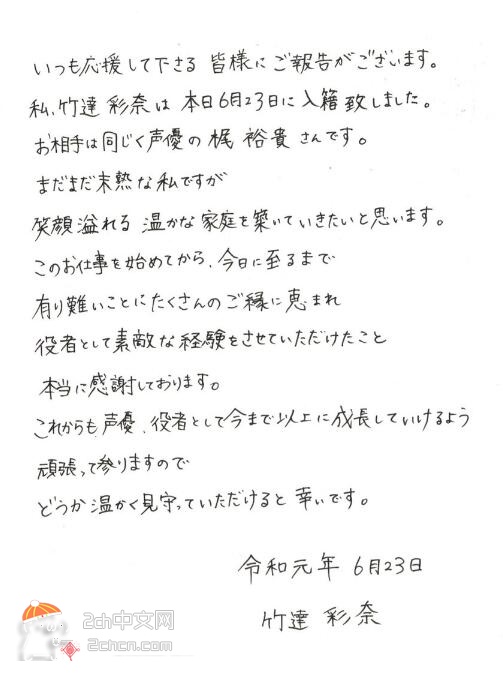 いつも応援して下さる 皆様にご報告がございます。
私、竹達 彩奈は 本日6月23日に入籍致しました。
お相手は同じく声優の梶 裕貴さんです。
まだまだ未熟な私ですが
笑顔溢れる 温かな家庭を築いていきたいと思います。
このお仕事を始めてから、今日に至るまで
有り難いことにたくさんのご縁に恵まれ
役者として素敵な経験をさせていただけたこと
本当に感謝しております。
これからも声優、役者として今まで以上に成長していけるよう
頑張って参りますので
どうか温かく見守っていただけると幸いです。
令和元年 6月23日
竹達 彩奈
2ch中文网
2chcn.com